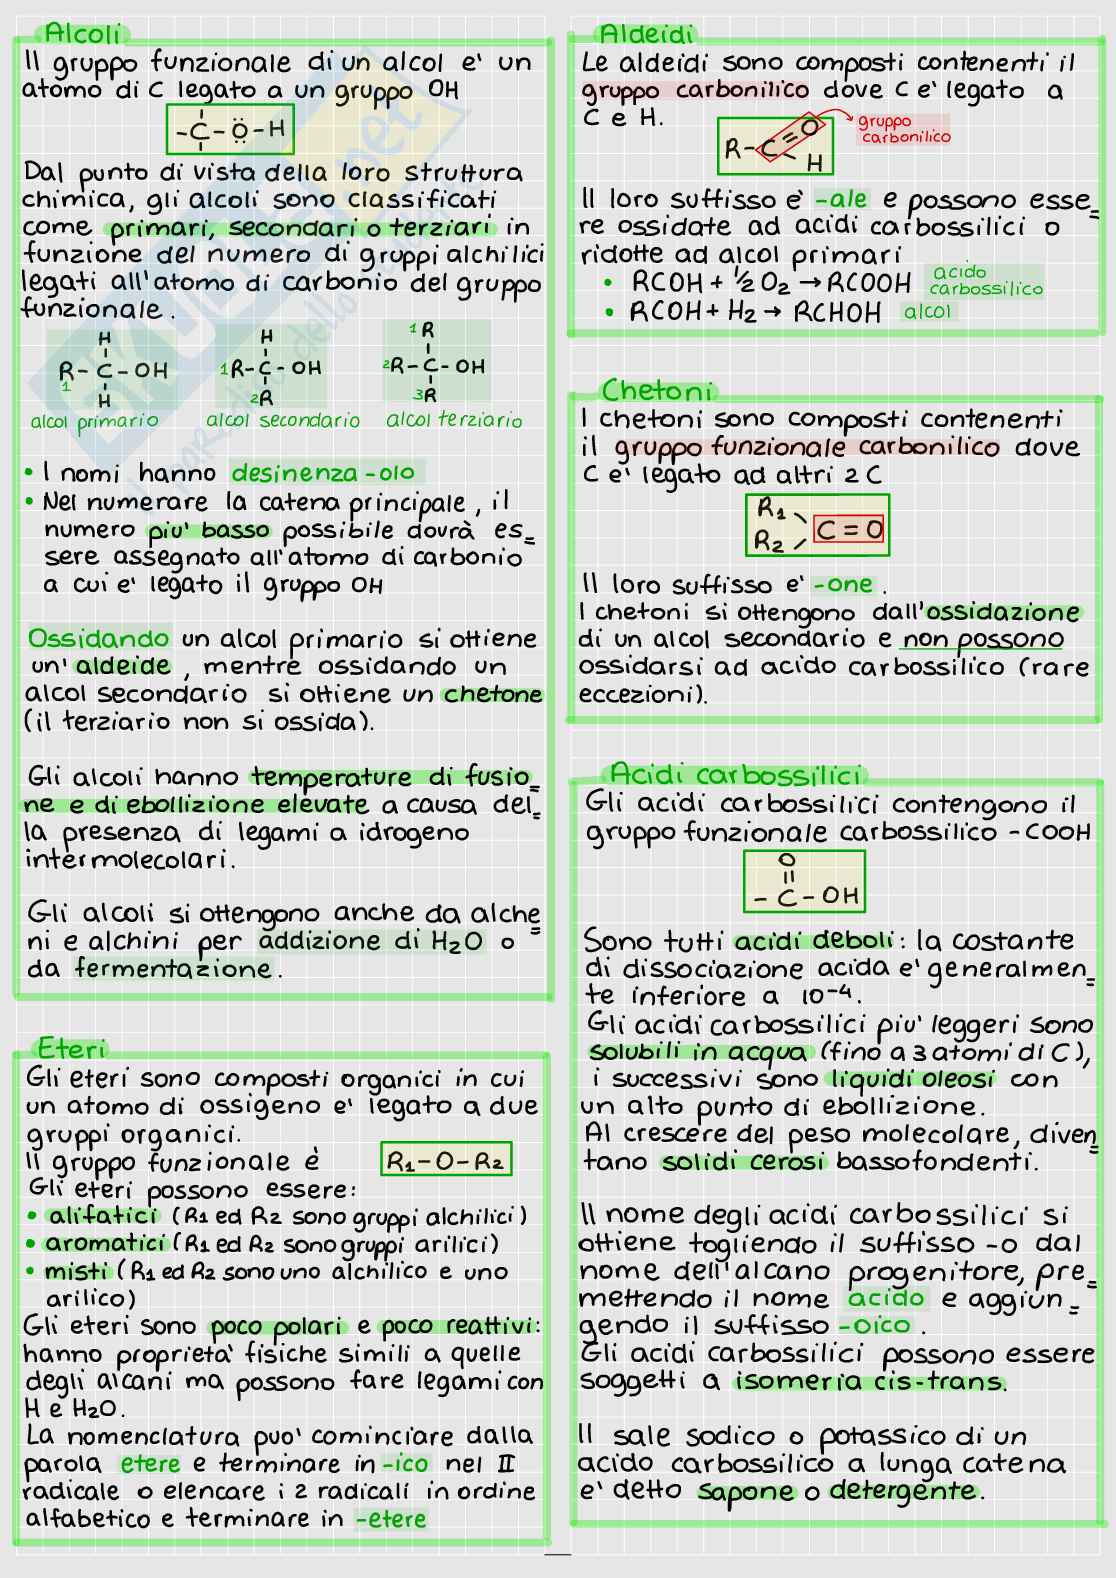 Alcoli
Il gruppo funzionale di un alcol e' un
atomo di C legato a un gruppo OH
-C-O-H
Dal punto di vista della loro struttura
chimica, gli alcoli sono classificati
come primari, secondari o terziari in
funzione del numero di gruppi alchilici
legati all'atomo di carbonio del gruppo
funzionale.
H
R-C-OH
1
H
alcol primario
H
1R-C-OH
2R
alcol secondario
1R
2R-C-OH
3R
alcol terziario
• I nomi hanno desinenza -olo
• Nel numerare la catena principale, il
numero piu' basso possibile dovrà es=
sere assegnato all'atomo di carbonio
a cui e' legato il gruppo OH
Ossidando un alcol primario si ottiene
un' aldeide, mentre ossidando un
alcol secondario si ottiene un chetone
(il terziario non si ossida).
Gli alcoli hanno temperature di fusio=
ne e di ebollizione elevate a causa del=
la presenza di legami a idrogeno
intermolecolari.
Gli alcoli si ottengono anche da alche=
ni e alchini per addizione di H₂O o
da fermentazione.
Eteri
Gli eteri sono composti organici in cui
un atomo di ossigeno e' legato a due
gruppi organici.
Il gruppo funzionale è R₁-O-R₂
Gli eteri possono essere:
• alifatici (R₁ ed R₂ sono gruppi alchilici)
• aromatici (R₁ ed R₂ sono gruppi arilici)
• misti (R₁ ed R₂ sono uno alchilico e uno
arilico)
Gli eteri sono poco polari e poco reattivi:
hanno proprieta' fisiche simili a quelle
degli alcani ma possono fare legami con
H e H₂O.
La nomenclatura puo' cominciare dalla
parola etere e terminare in -ico nel II
radicale o elencare i 2 radicali in ordine
alfabetico e terminare in -etere
Aldeidi
Le aldeidi sono composti contenenti il
gruppo carbonilico dove C e' legato a
C e H.
R-C=O
H
gruppo
carbonilico
Il loro suffisso e' -ale e possono esse=
re ossidate ad acidi carbossilici o
ridotte ad alcol primari
• RCOH + ½O₂ → RCOOH acido
carbossilico
• RCOH + H₂ → RCHOH alcol
Chetoni
I chetoni sono composti contenenti
il gruppo funzionale carbonilico dove
C e' legato ad altri 2 C
R₁
C=O
R₂
Il loro suffisso e' -one.
I chetoni si ottengono dall'ossidazione
di un alcol secondario e non possono
ossidarsi ad acido carbossilico (rare
eccezioni).
Acidi carbossilici
Gli acidi carbossilici contengono il
gruppo funzionale carbossilico -COOH
O
-C-OH
Sono tutti acidi deboli: la costante
di dissociazione acida e' generalmen=
te inferiore a 10⁻⁴.
Gli acidi carbossilici piu' leggeri sono
solubili in acqua (fino a 3 atomi di C),
i successivi sono liquidi oleosi con
un alto punto di ebollizione.
Al crescere del peso molecolare, diven=
tano solidi cerosi bassofondenti.
Il nome degli acidi carbossilici si
ottiene togliendo il suffisso -o dal
nome dell'alcano progenitore, pre=
mettendo il nome acido e aggiun=
gendo il suffisso -oico.
Gli acidi carbossilici possono essere
soggetti a isomeria cis-trans.
Il sale sodico o potassico di un
acido carbossilico a lunga catena
e' detto sapone o detergente.